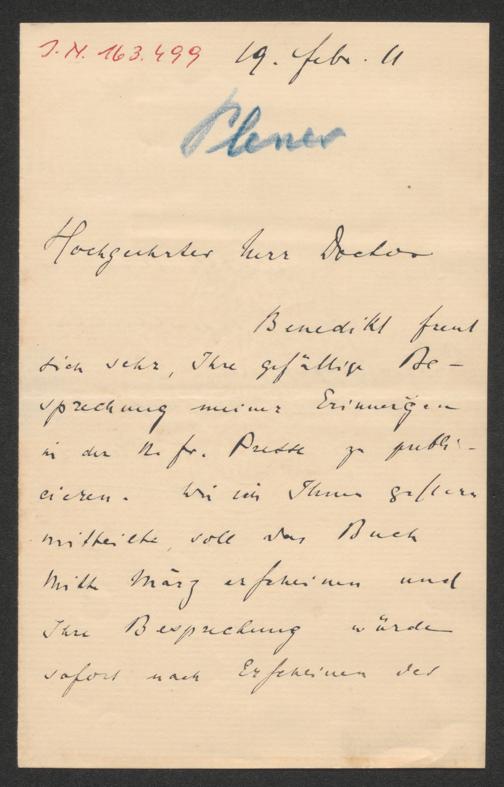 J.N. 163.499 19. Febr. 11
Plener
Hochgeehrter Herr Doctor
Benedikt freut
sich sehr, Ihre gefällige Be-
sprechung meiner Erinnerungen
in der N. fr. Presse zu publi-
cieren. Wie ich Ihnen gestern
mittheilte, soll das Buch
Mitte März erscheinen und
Ihre Besprechung würde
sofort nach Erscheinen des